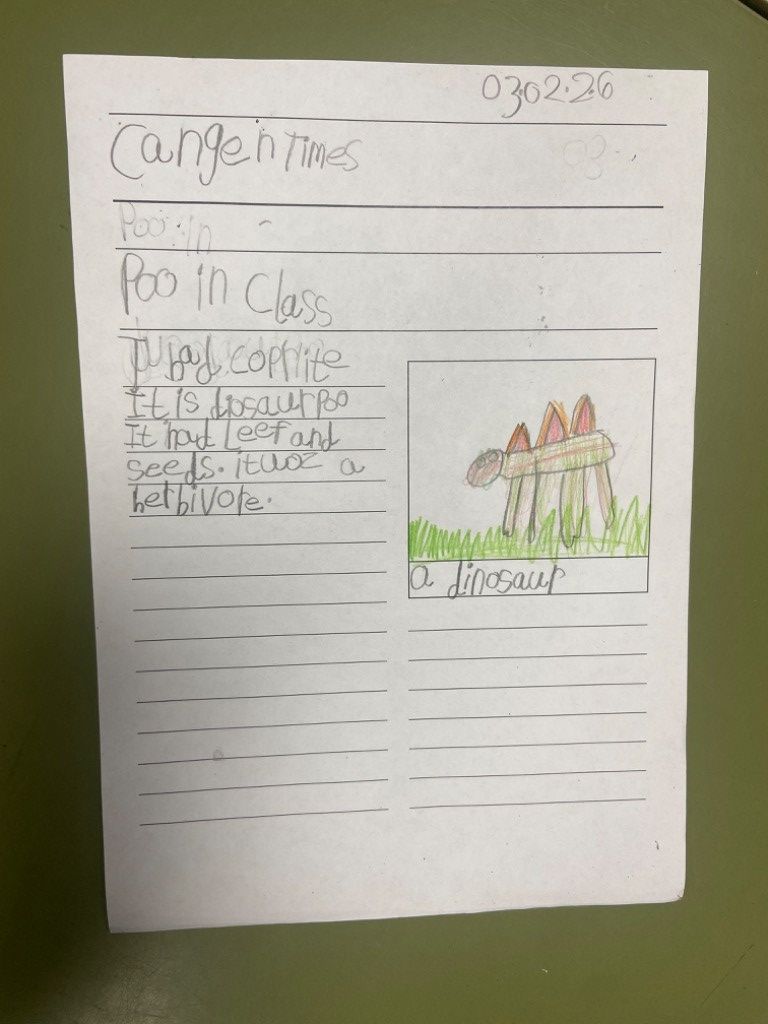 03.02.26
Cangen Times
Poo in
Poo in Class
I had coprlite
It is diosaur poo
It had Leef and
seeds. it woz a
herbivore.
a dinosaur